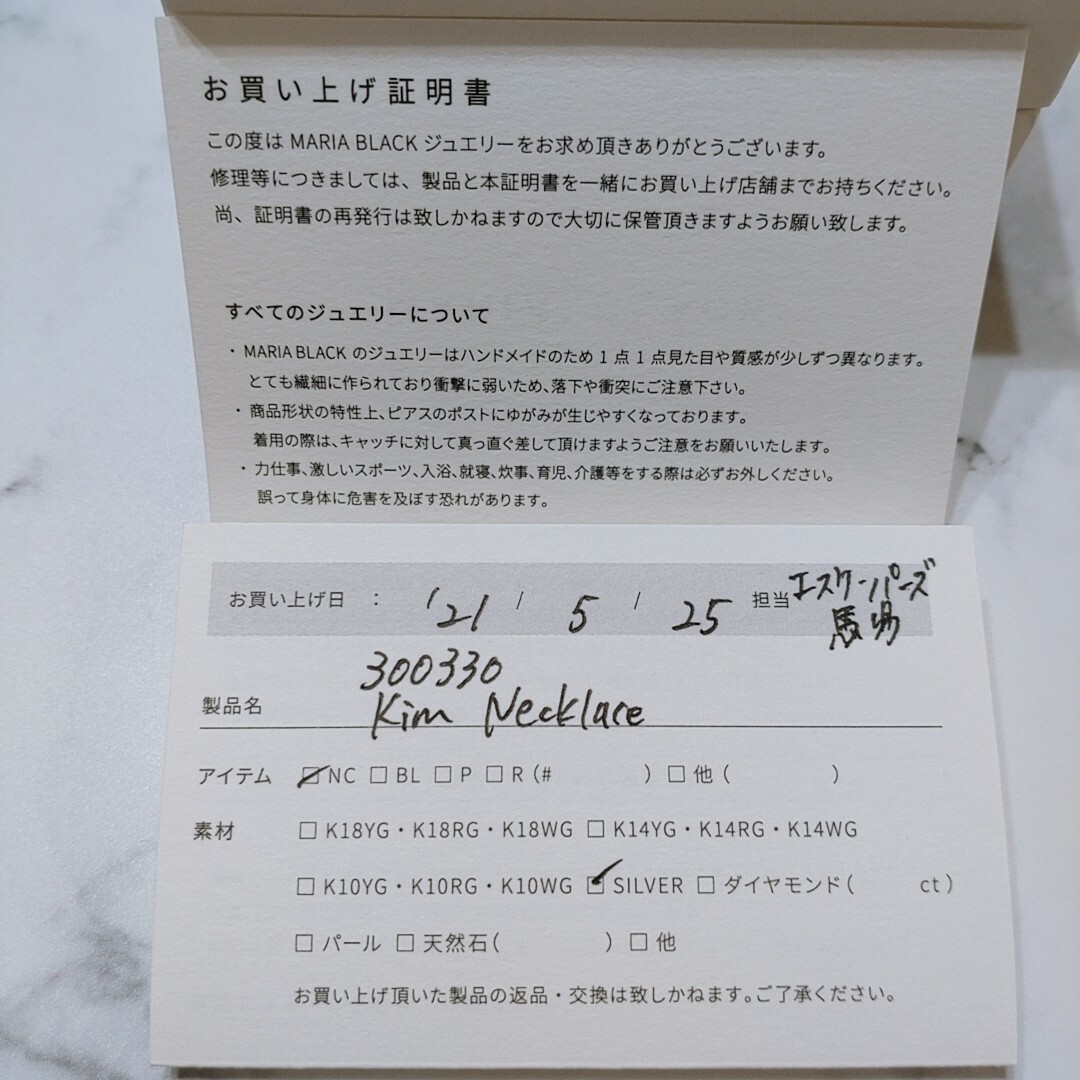 お買い上げ証明書
この度は MARIA BLACK ジュエリーをお求め頂きありがとうございます。
修理等につきましては、製品と本証明書を一緒にお買い上げ店舗までお持ちください。
尚、証明書の再発行は致しかねますので大切に保管頂きますようお願い致します。
すべてのジュエリーについて
・MARIA BLACK のジュエリーはハンドメイドのため 1 点 1 点見た目や質感が少しずつ異なります。
とても繊細に作られており衝撃に弱いため、落下や衝突にご注意下さい。
・商品形状の特性上、ピアスのポストにゆがみが生じやすくなっております。
着用の際は、キャッチに対して真っ直ぐ差して頂けますようご注意をお願いいたします。
・力仕事、激しいスポーツ、入浴、就寝、炊事、育児、介護等をする際は必ずお外しください。
誤って身体に危害を及ぼす恐れがあります。
お買い上げ日 : '21 / 5 / 25 担当 エスケーパーズ
馬場
300330
製品名 Kim Necklace
アイテム ☑ NC □ BL □ P □ R (# ) □ 他 ( )
素材 □ K18YG・K18RG・K18WG □ K14YG・K14RG・K14WG
□ K10YG・K10RG・K10WG ☑ SILVER □ ダイヤモンド ( ct )
□ パール □ 天然石 ( ) □ 他
お買い上げ頂いた製品の返品・交換は致しかねます。ご了承ください。